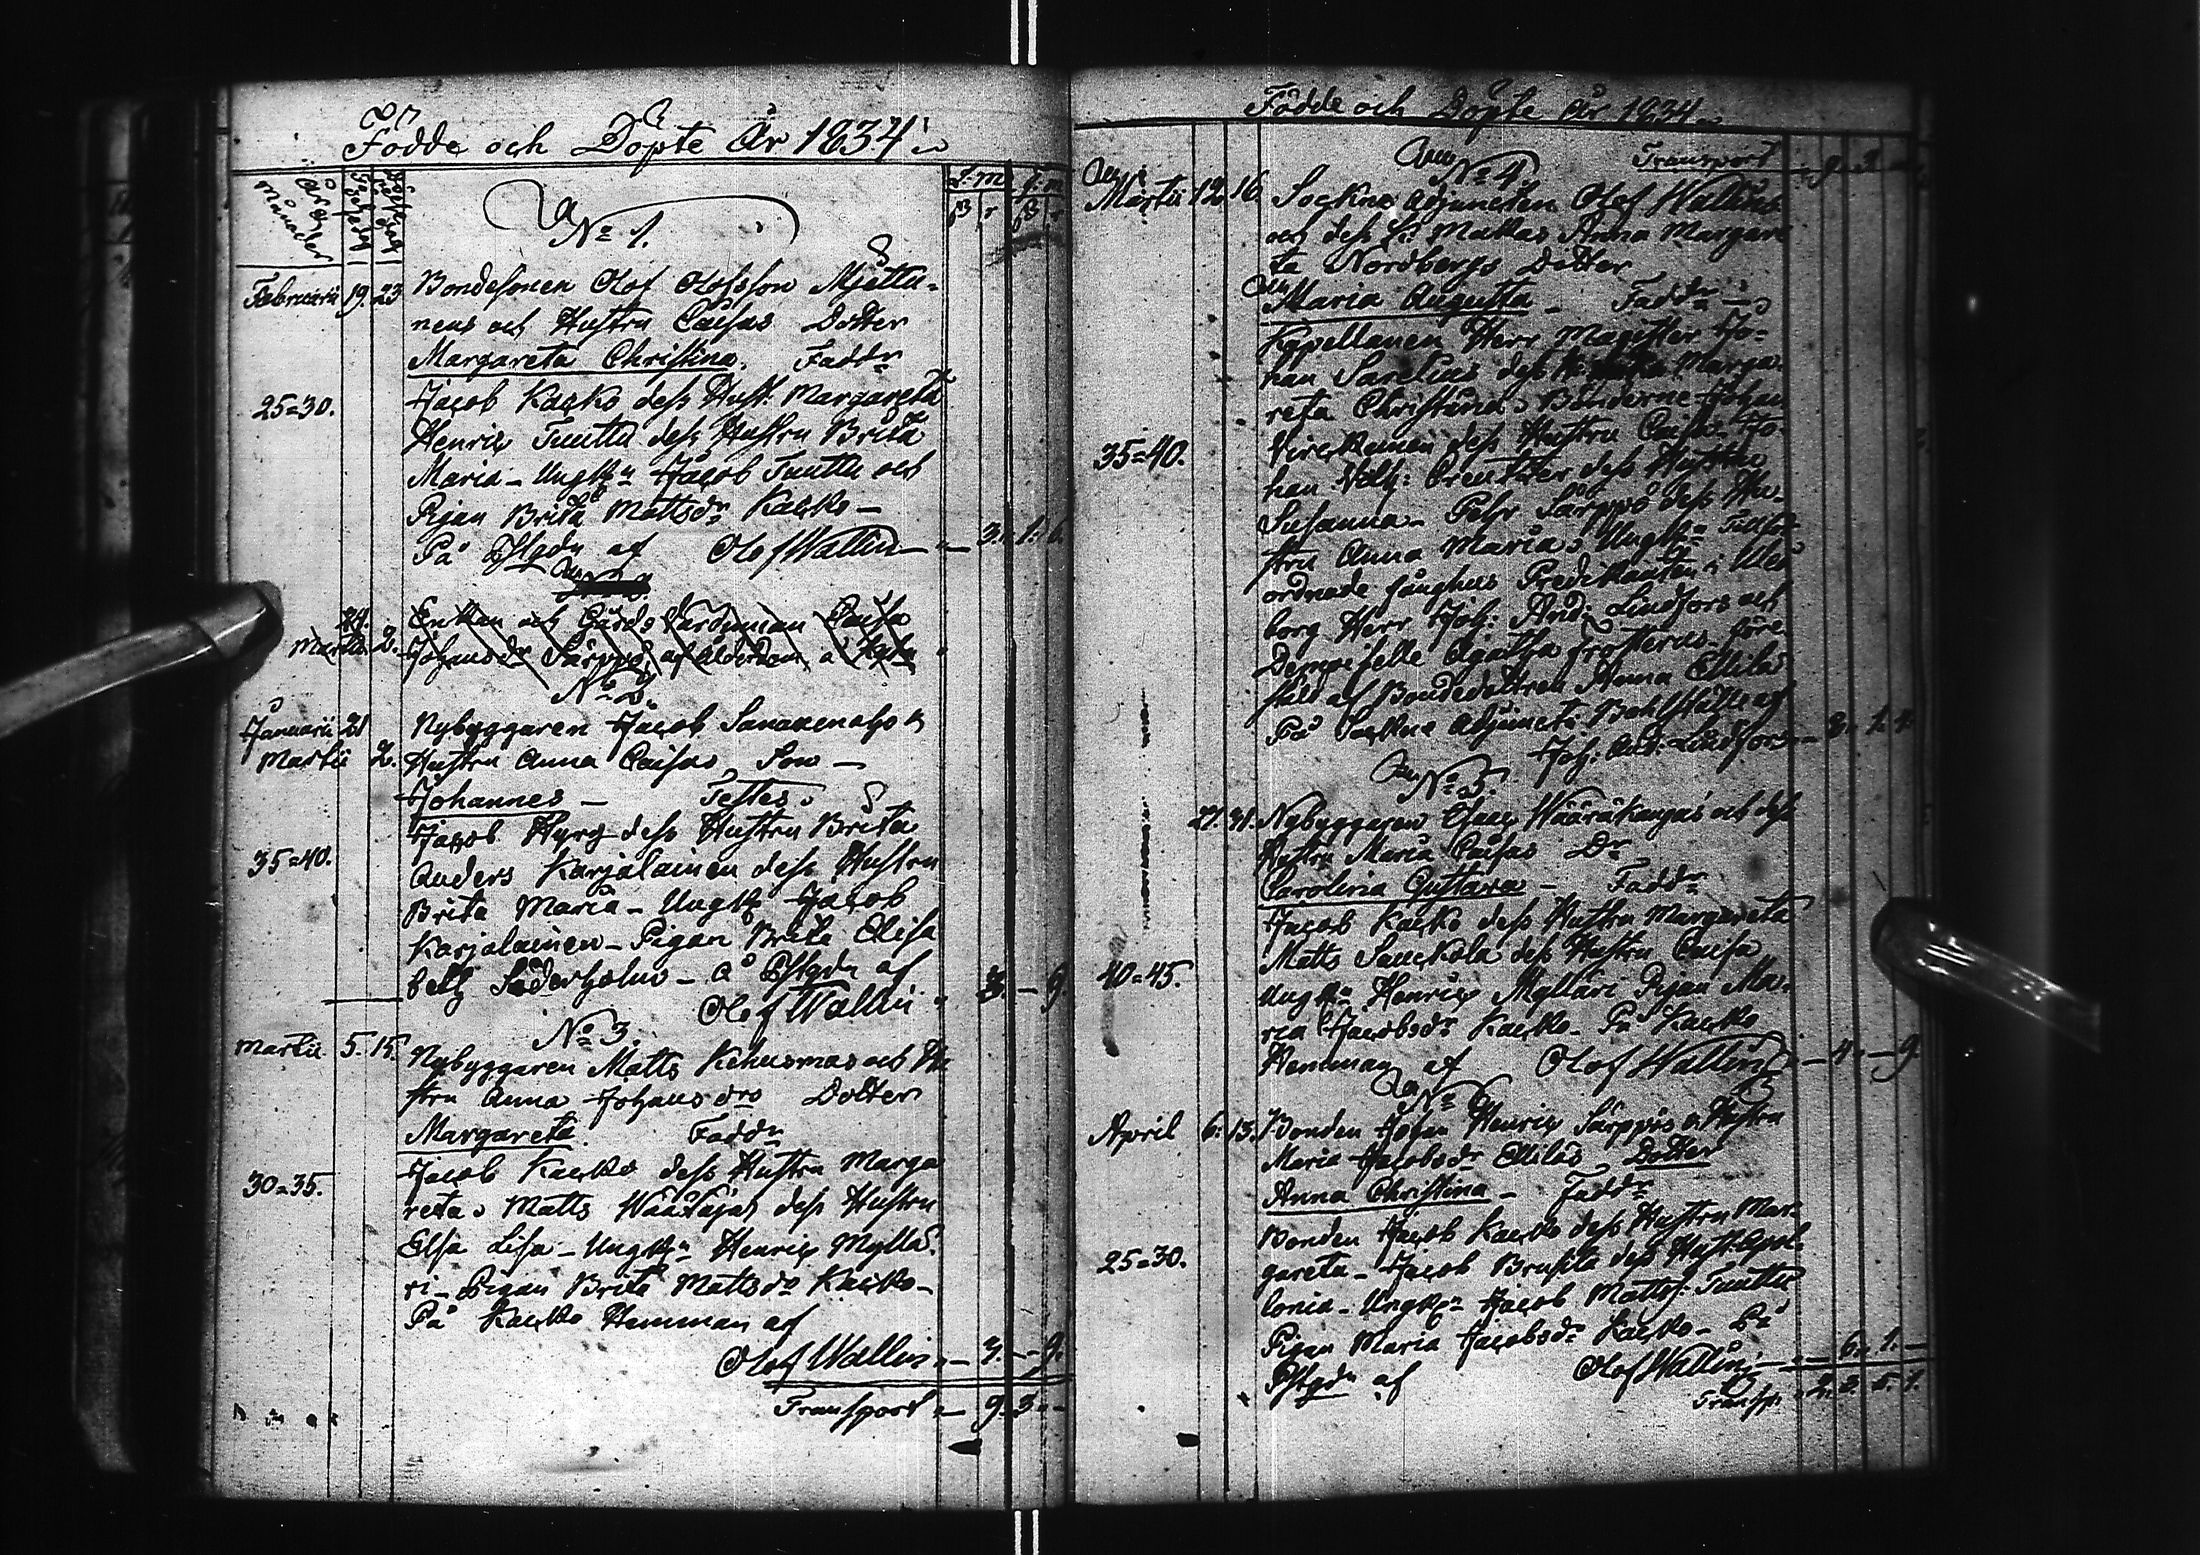 Födde och Döpte År 1834
Månader
No 1.
Februarii 19. 23 Bondesonen Olof Olofsson Mjettu-
nens och Hustru Caisas Dotter
Margareta Christina. Faddr
25=30. Jacob Kacko dess Hust. Margareta
Henric Tuuttu dess Hustru Brita
Maria - Ungk: Jacob Tuuttu och
Pigan Brita Mattsdr Kacko -
På af Olof Wallin - 3. 1. 6.
24. Enkan och
Martii 2. Johansdr Särppö af
No 2.
Januarii 21 Nybyggaren Jacob
Martii 2. Hustru Anna Caisas Son -
Johannes - Testes.
Jacob Hyry dess Hustru Brita
35=40. Anders Karjalainen dess Hustru
Brita Maria - Ungk Jacob
Karjalainen - Pigan Brita Elisa
beth Söderholm - å af
Olof Wallin 3. - 9.
No 3.
Martii 5. 15. Nybyggaren Matts Kehusmas och Hu
stru Anna Johansdrs Dotter
Margareta. Faddr
Jacob Kacko dess Hustru Marga
30=35. reta. Matts Wäätäjä dess Hustru
Elsa Lisa - Ungk: Henric Myllä
ri - Pigan Brita Mattsdr Kacko -
På Kacko Hemman af
Olof Wallin - 3. - 9.
Transport - 9. 3. -
Födde och Döpte År 1834
No 4. Transport 9. 3. -
Martii 12. 16. Sockne Adjuncten Olof Wallins
och dess Makas Anna Margare
ta Nordbergs Dotter
Maria Augusta - Faddr
Kapellanen Herr Magister Jo-
han dess Marga-
reta Christina. Bönderne Johan
35=40. dess Hustru Caisa. Jo-
han dess Hustru
Susanna - Pehr Särppö dess Hu-
stru Anna Maria. Ungk:
ordnade Predikanten i Uleå
borg Herr Joh: And: Lindfors och
Agatha Frosterus före-
ställd af Bondedottren Anna
På Sockne Adjuncts af
Joh: And: Lindfors - 3.
No 5.
27. 31. Nybyggaren Wääräkangas och dess
Hustru Maria Caisas Dr
Carolina Gustava - Faddr
Jacob Kacko dess Hustru Margareta
Matts dess Hustru Caisa
40=45. Ungk: Henric Mylläri Pigan Ma-
ria Jacobsdr Kacko - På Kacko
Hemman af Olof Wallin - 4. - 9.
No 6.
April 6. 13. Bonden Johan Henric Särppös o. Hustru
Maria Jacobsdr Dotter
Anna Christina - Faddr
Bonden Jacob Kacko dess Hustru Mar-
25=30. gareta - Jacob Brusila dess Hust. Apol-
lonia - Ungk: Jacob Matts: Tuuttu
Pigan Maria Jacobsdr Kacko - På
af Olof Wallin - 6. 1. -
Transp. 2. 5. 1.